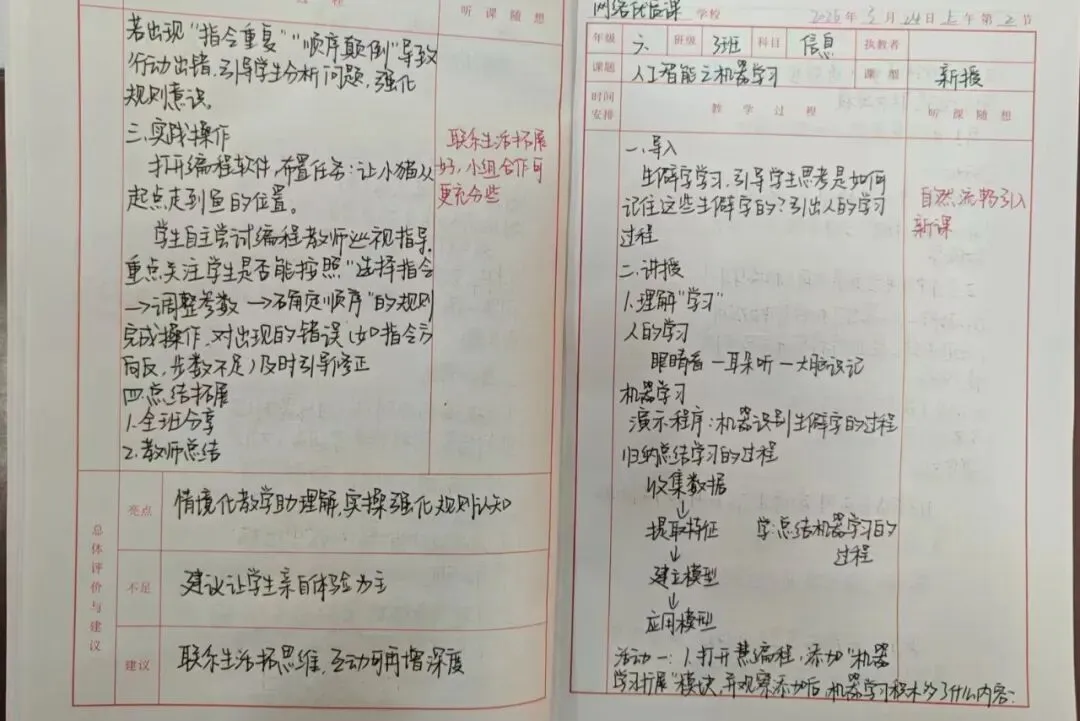 过 程
听 课 随 想
若出现“指令重复”“顺序颠倒”导致
行动出错,引导学生分析问题,强化
规则意识。
三.实践操作
打开编程软件,布置任务:让小猪从
起点走到鱼的位置。
学生自主尝试编程,教师巡视指导,
重点关注学生是否能按照“选择指令
→调整参数→确定顺序”的规则
完成操作,对出现的错误(如指令方
向反,步数不足)及时引导修正
四.总结拓展
1.全班分享
2.教师总结
联系生活拓展
好,小组合作可
更充分些
总体评价与建议
亮点
情境化教学助理解,实操强化规则认知
不足
建议让学生亲自体验为主
建议
联系生活拓思维,互动可再增深度
网络 课 学校 2026年3月24日上午第2节
年级 六 班级 3班 科目 信息 执教者
课题 人工智能之机器学习 课型 新授
时间安排 教 学 过 程 听 课 随 想
一.导入
生僻字学习,引导学生思考是如何
记住这些生僻字的?引出人的学习
过程
自然流畅引入
新课
二.讲授
1.理解“学习”
人的学习
眼睛看—耳朵听—大脑识记
机器学习
演示程序:机器识别生僻字的过程
归纳总结学习的过程
收集数据
↓
提取特征 学:总结机器学习的
过程
↓
建立模型
↓
应用模型
活动一:1.打开慧编程,添加“机器
学习扩展”模块,并观察添加后,机器学习积木多了什么内容: